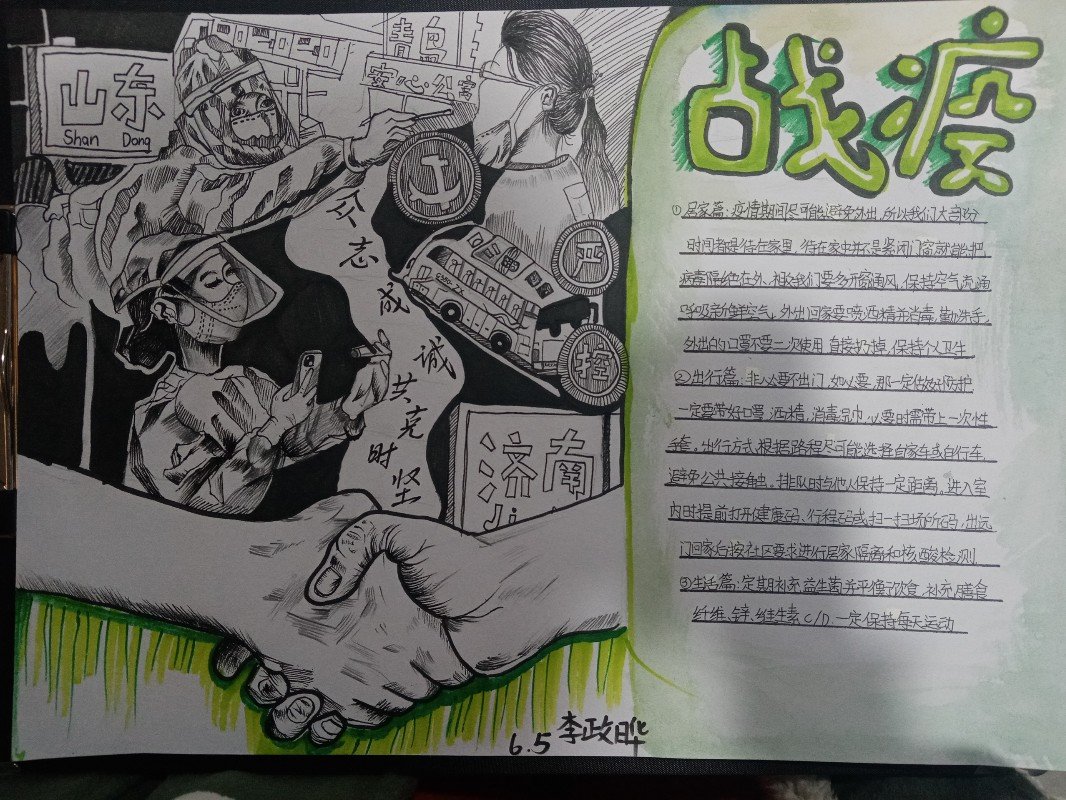 山东
Shan Dong
青岛
安心
众志成诚共克时坚
严
控
济南
Ji
6.5 李政晔
战疫
①居家篇：疫情期间尽可能避免外出，所以我们大部分
时间都是待在家里，待在家中并不是紧闭门窗就能把
病毒隔绝在外，相反我们要多开窗通风，保持空气流通
呼吸新鲜空气，外出回家要喷洒精并消毒，勤洗手，
外出的口罩不要二次使用 直接扔掉，保持个人卫生
②出行篇：非必要不出门，如必要，那一定做好防护
一定要带好口罩，洒精，消毒湿巾，必要时需带上一次性
手套。出行方式，根据路程尽可能选择自家车或自行车，
避免公共接触。排队时与他人保持一定距离，进入室
内时提前打开健康码、行程码或扫一扫场所码，出远
门回家后按社区要求进行居家隔离和核酸检测
③生活篇：定期补充益生菌并平衡饮食，补充膳食
纤维、锌、维生素C/D，一定保持每天运动